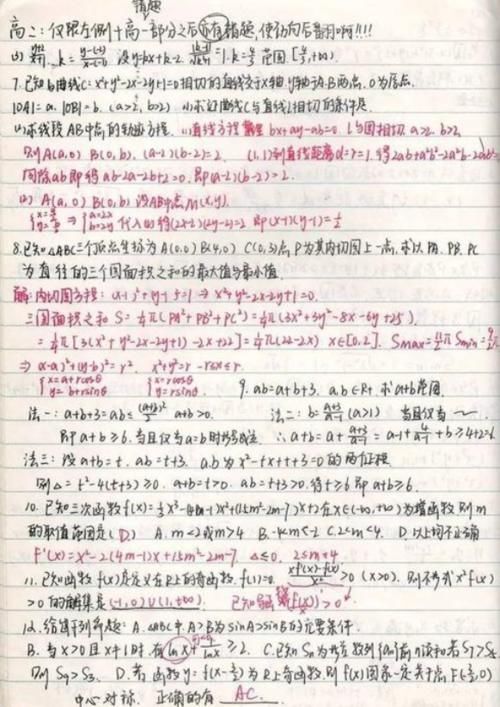 错题
高二：仅限左侧+高一部分之后亦有错题，使劲向后翻啊啊!!!
7.已知与曲线C: x²+y²-2x-2y+1=0相切的直线交x轴,y轴于A,B两点,O为原点,
|OA|=a. |OB|=b. (a>2, b>2) (1)求证曲线C与直线l相切的条件是
(2)求线段AB中点的轨迹方程. (1)直线方程 bx+ay-ab=0. l与圆相切. a>2. b>2,
则A(a,0) B(0,b). (a-2)(b-2)=2. (1,1)到直线距离d=r=1. 得2ab+a²b²-2a²b-2ab²=
同除ab即得ab-2a-2b+2=0. 即(a-2)(b-2)=2.
(2) A(a,0) B(0,b) 设AB中点M(x,y).
{x=a/2 y=b/2 ⇒ {a=2x b=2y 代入(1)得(2x-2)(2y-2)=2 即(x-1)(y-1)=1/2
8.已知△ABC三个顶点坐标为A(0,0) B(4,0) C(0,3)点P为其内切圆上一点,求以PA. PB. PC
为直径的三个圆面积之和的最大值与最小值.
解:内切圆方程: (x-1)²+(y-1)²=1 ⇒ x²+y²-2x-2y+1=0.
三圆面积之和 S=1/4π(PA²+PB²+PC²)=1/4π(3x²+3y²-8x-6y+25)
=1/4π[3(x²+y²-2x-2y+1)-2x+22]=1/4π(22-2x) x∈[0,2]. Smax=11/2π Smin=9/2π
⇒ (x-a)²+(y-b)²=r². x²+y²=r -r≤x≤r.
{x=a+rcosθ y=b+rsinθ {x=rcosθ y=rsinθ. 9. ab=a+b+3. a,b∈R+. 求a+b范围.
法一: a+b+3=ab≤(a+b)²/2 a+b>0. 法二: b=a+3/a-1 (a>1) 当且仅当
即a+b≥6. 当且仅当a=b时等号成立 ∴a+b=a+a+3/a-1=a-1+4/a-1+b≥4+2=6
法三:设a+b=t. ab=t+3. a,b为x²-tx+t+3=0的两正根
则△=t²-4(t+3)≥0. a+b=t>0. ab=t+3>0. 得t≥6即a+b≥6.
10.已知三次函数f(x)=1/3x³-(4m-1)x²+(15m²-2m-7)x+2在x∈(-∞,+∞)为增函数则m
的取值范围是(D) A. m<2或m>4 B. -4<m<-2 C.2<m<4. D.以上均不正确
f'(x)=x²-2(4m-1)x+15m²-2m-7. △≤0. 2≤m≤4
11.已知函数f(x)是定义在R上的奇函数. f(1)=0. xf'(x)-f(x)/x²>0 (x>0). 则不等式x²f(x)
>0的解集是(-1,0)∪(1,+∞).
12.给出下列命题: A.△ABC中. A>B为sinA>sinB的充要条件.
B.当x>0且x≠1时.有lnx+1/lnx≥2. C.已知Sn为等差数列{an}前n项和若S7>S5
则S9>S3. D.若函数y=f(x-3/2)为R上奇函数.则f(x)图象一定关于点F(3/2,0)
中心对称. 正确的有 AC.